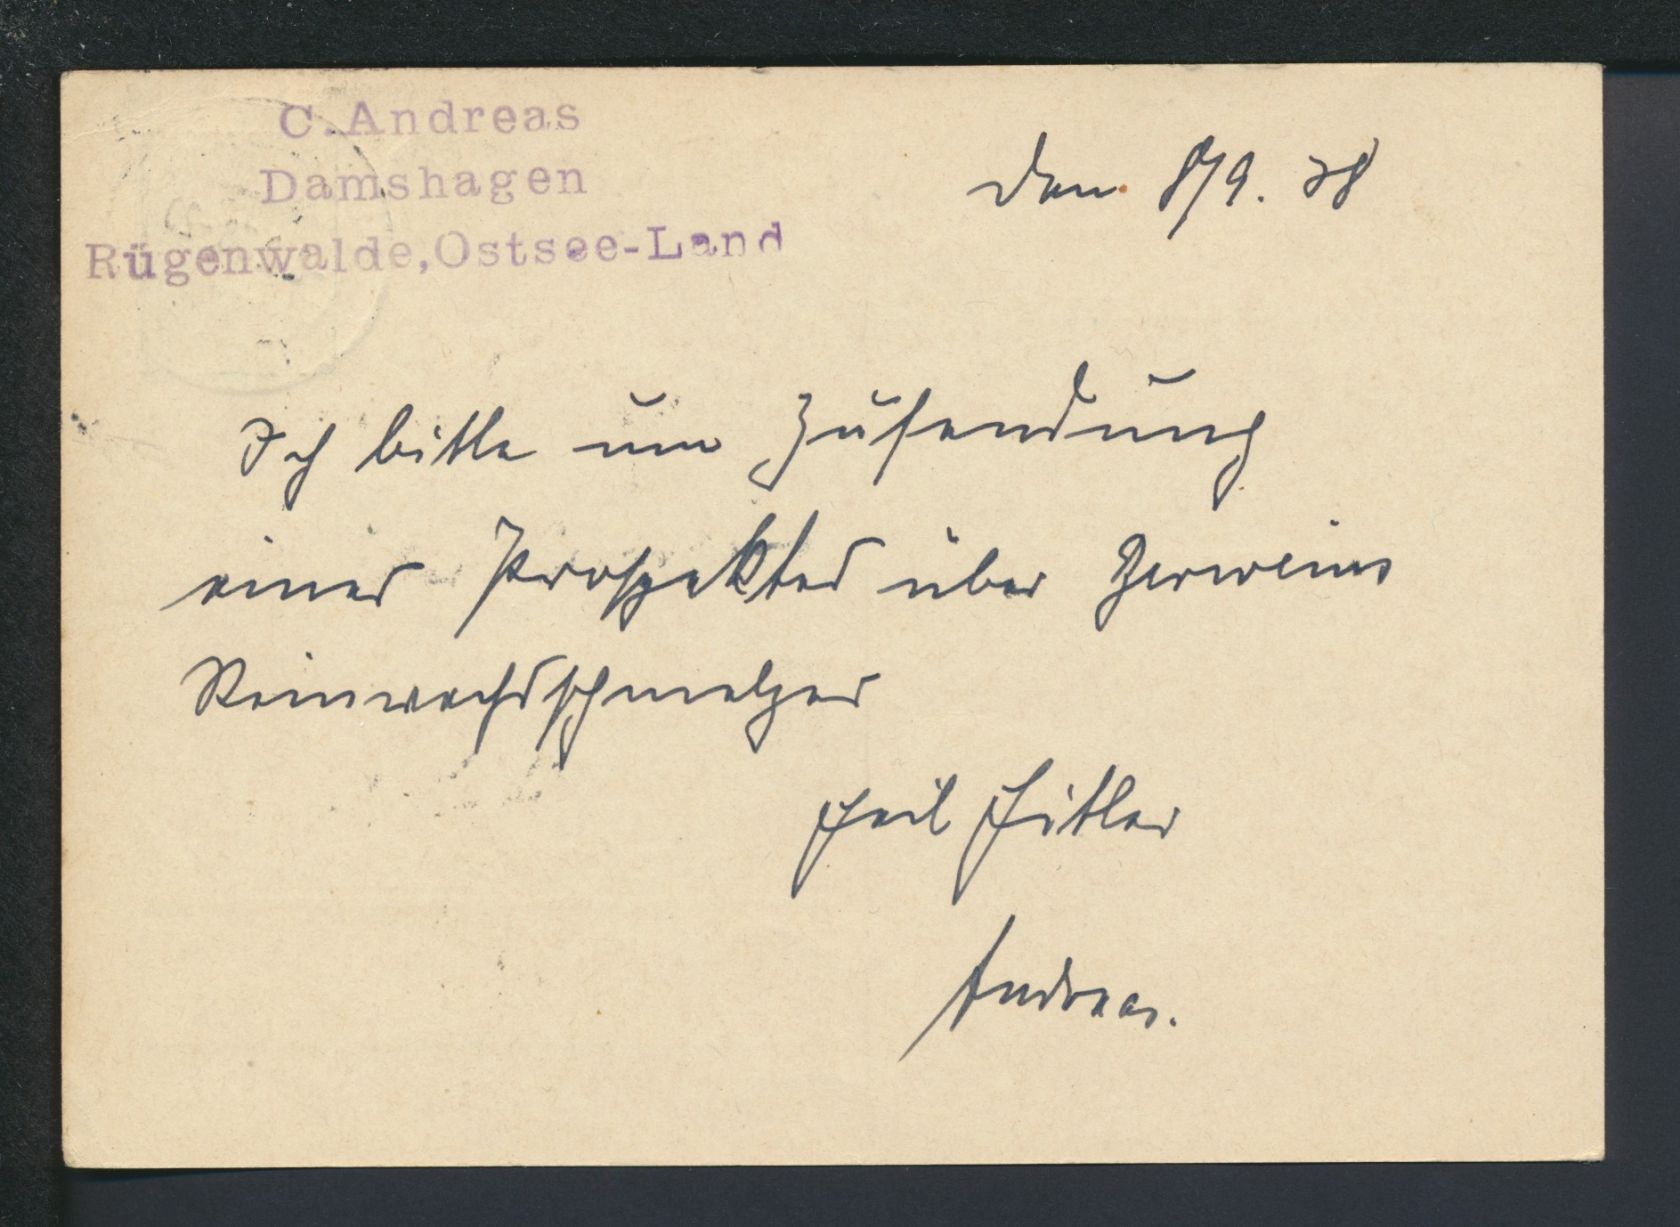 C. Andreas
Damshagen
Rügenwalde, Ostsee-Land
den 8/9. 38
Ich bitte um Zusendung
eines Prospektes über
Reinwachsschmelzer
Heil Hitler
Andreas.